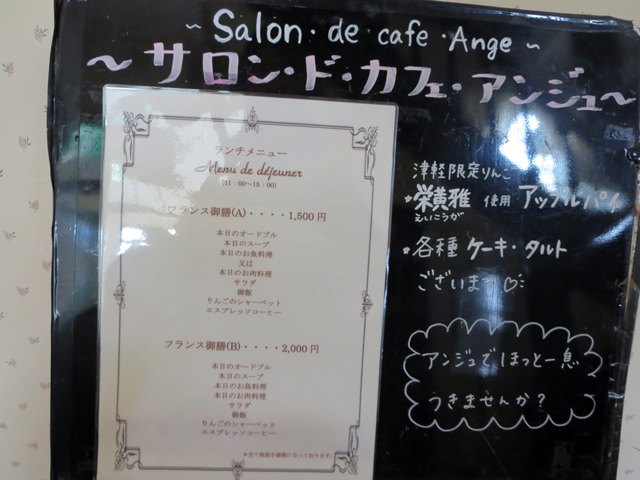 ~ Salon・de cafe・Ange ~
～サロン・ド・カフェ・アンジュ～
ランチメニュー
Menu de déjeuner
(11：00～15：00)
フランス御膳(A)・・・・1,500円
本日のオードブル
本日のスープ
本日のお魚料理
又は
本日のお肉料理
サラダ
御飯
りんごのシャーベット
エスプレッソコーヒー
フランス御膳(B)・・・・2,000円
本日のオードブル
本日のスープ
本日のお魚料理
本日のお肉料理
サラダ
御飯
りんごのシャーベット
エスプレッソコーヒー
＊全て税抜き価格になっております。
津軽限定りんご
・栄黄雅 使用 アップルパイ
えいこうが
・各種 ケーキ・タルト
ございます♡
アンジュでほっと一息
つきませんか？